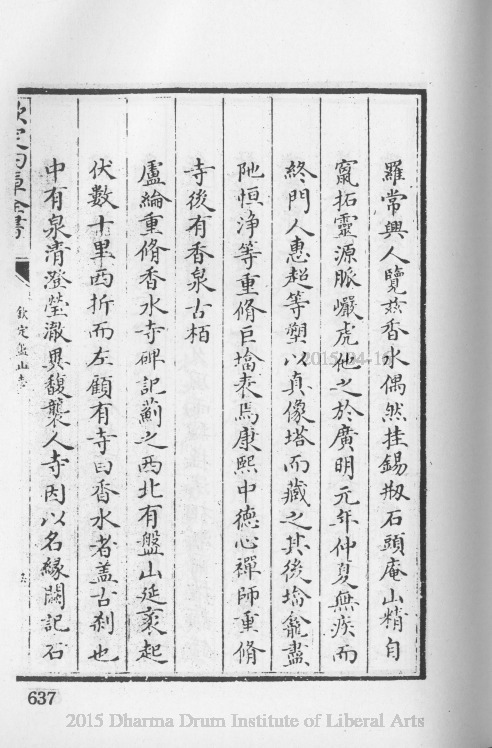 羅常興人覽茲香水偶然挂錫剏石頭庵山精自
竄拓靈源脈巘虎他之於廣明元年仲夏無疾而
終門人惠超等塑以真像塔而藏之其後墖龕盡
阤恒淨等重脩巨墖表焉康熙中德心禪師重脩
寺後有香泉古栢
盧綸重脩香水寺碑記薊之西北有盤山延袤起
伏數十里西折而左顧有寺曰香水者蓋古刹也
中有泉清澄瑩澈異馥襲人寺因以名緣闕記石
欽定四庫全書
欽定盤山志
637
2015 Dharma Drum Institute of Liberal Arts